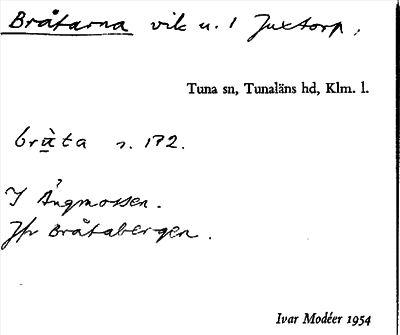 Bråtarna vik u. 1 Juxtorp,
Tuna sn, Tunaläns hd, Klm. l.
brùta s. 172.
I Ångmossen.
Jfr Bråtabergen.
Ivar Modéer 1954